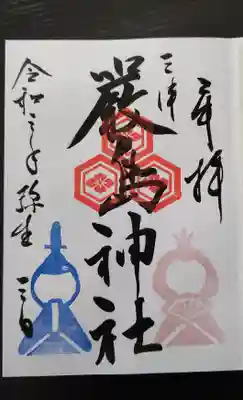 奉拝
三津
厳島神社
令和三年弥生三日